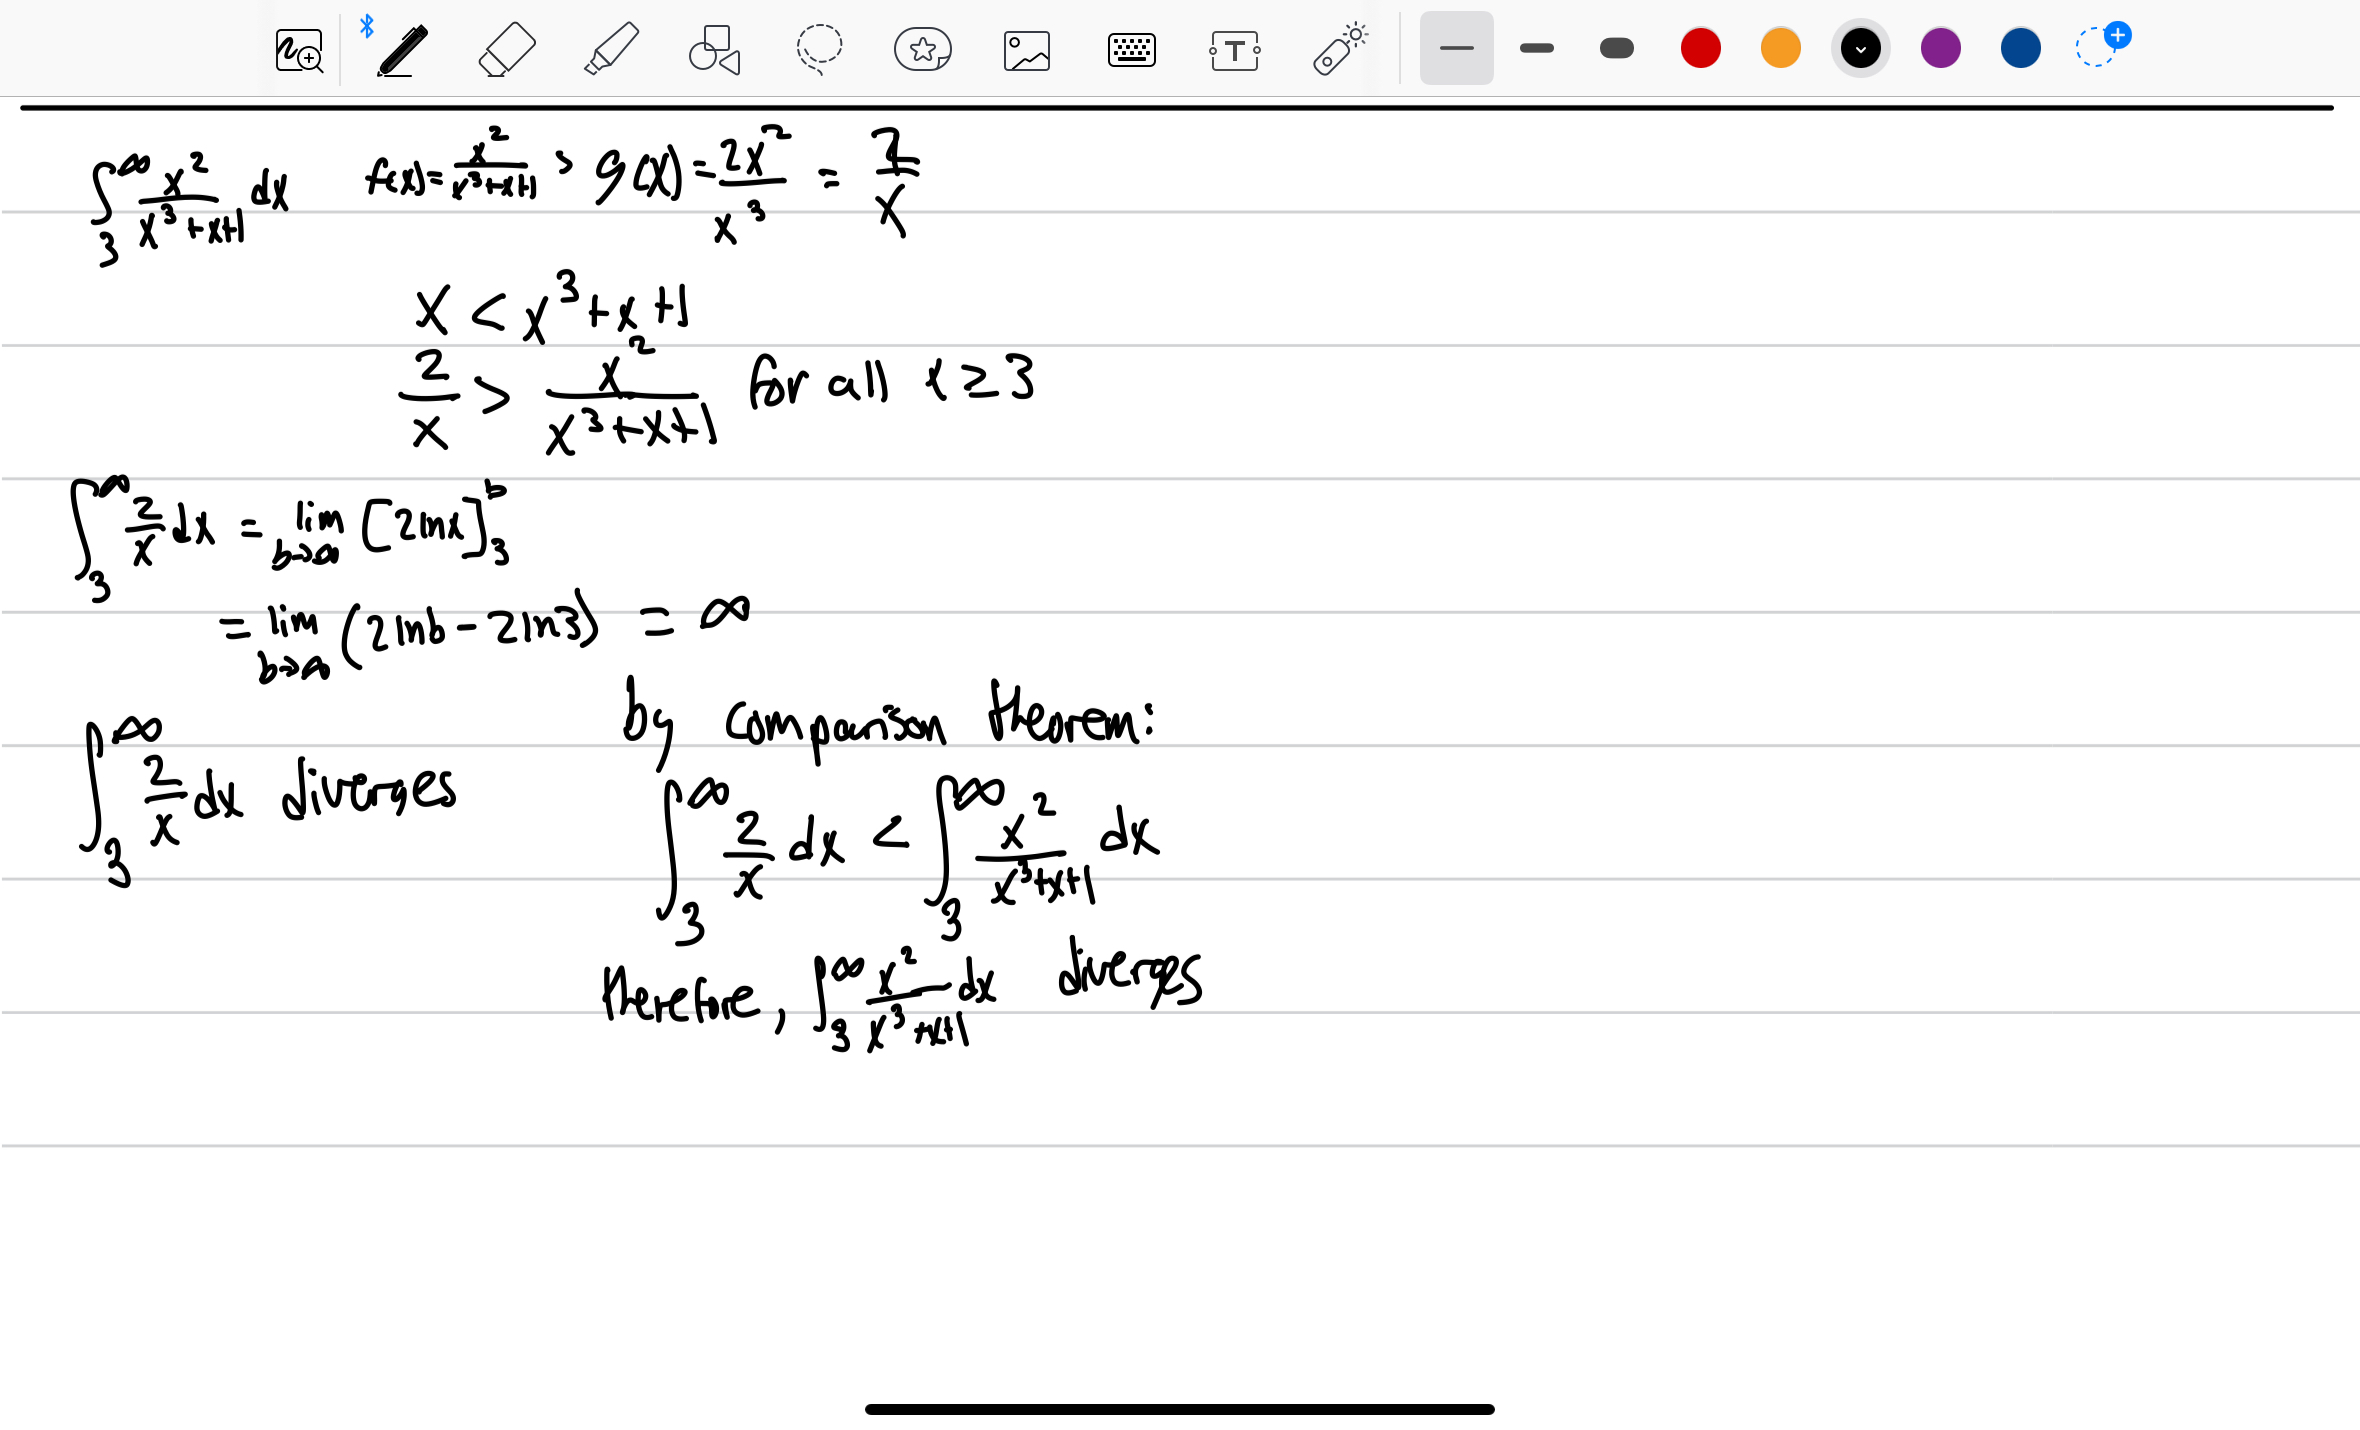 ∫_3^∞ x^2/(x^3+x+1) dx f(x) = x^2/(x^3+x+1) > g(x) = 2x^2/x^3 = 2/x
x < x^3+x+1
2/x > x^2/(x^3+x+1) for all x ≥ 3
∫_3^∞ 2/x dx = lim_{b→∞} [2lnx]_3^b
= lim_{b→∞} (2lnb - 2ln3) = ∞
by comparison theorem:
∫_3^∞ 2/x dx diverges
∫_3^∞ 2/x dx < ∫_3^∞ x^2/(x^3+x+1) dx
therefore, ∫_3^∞ x^2/(x^3+x+1) dx diverges